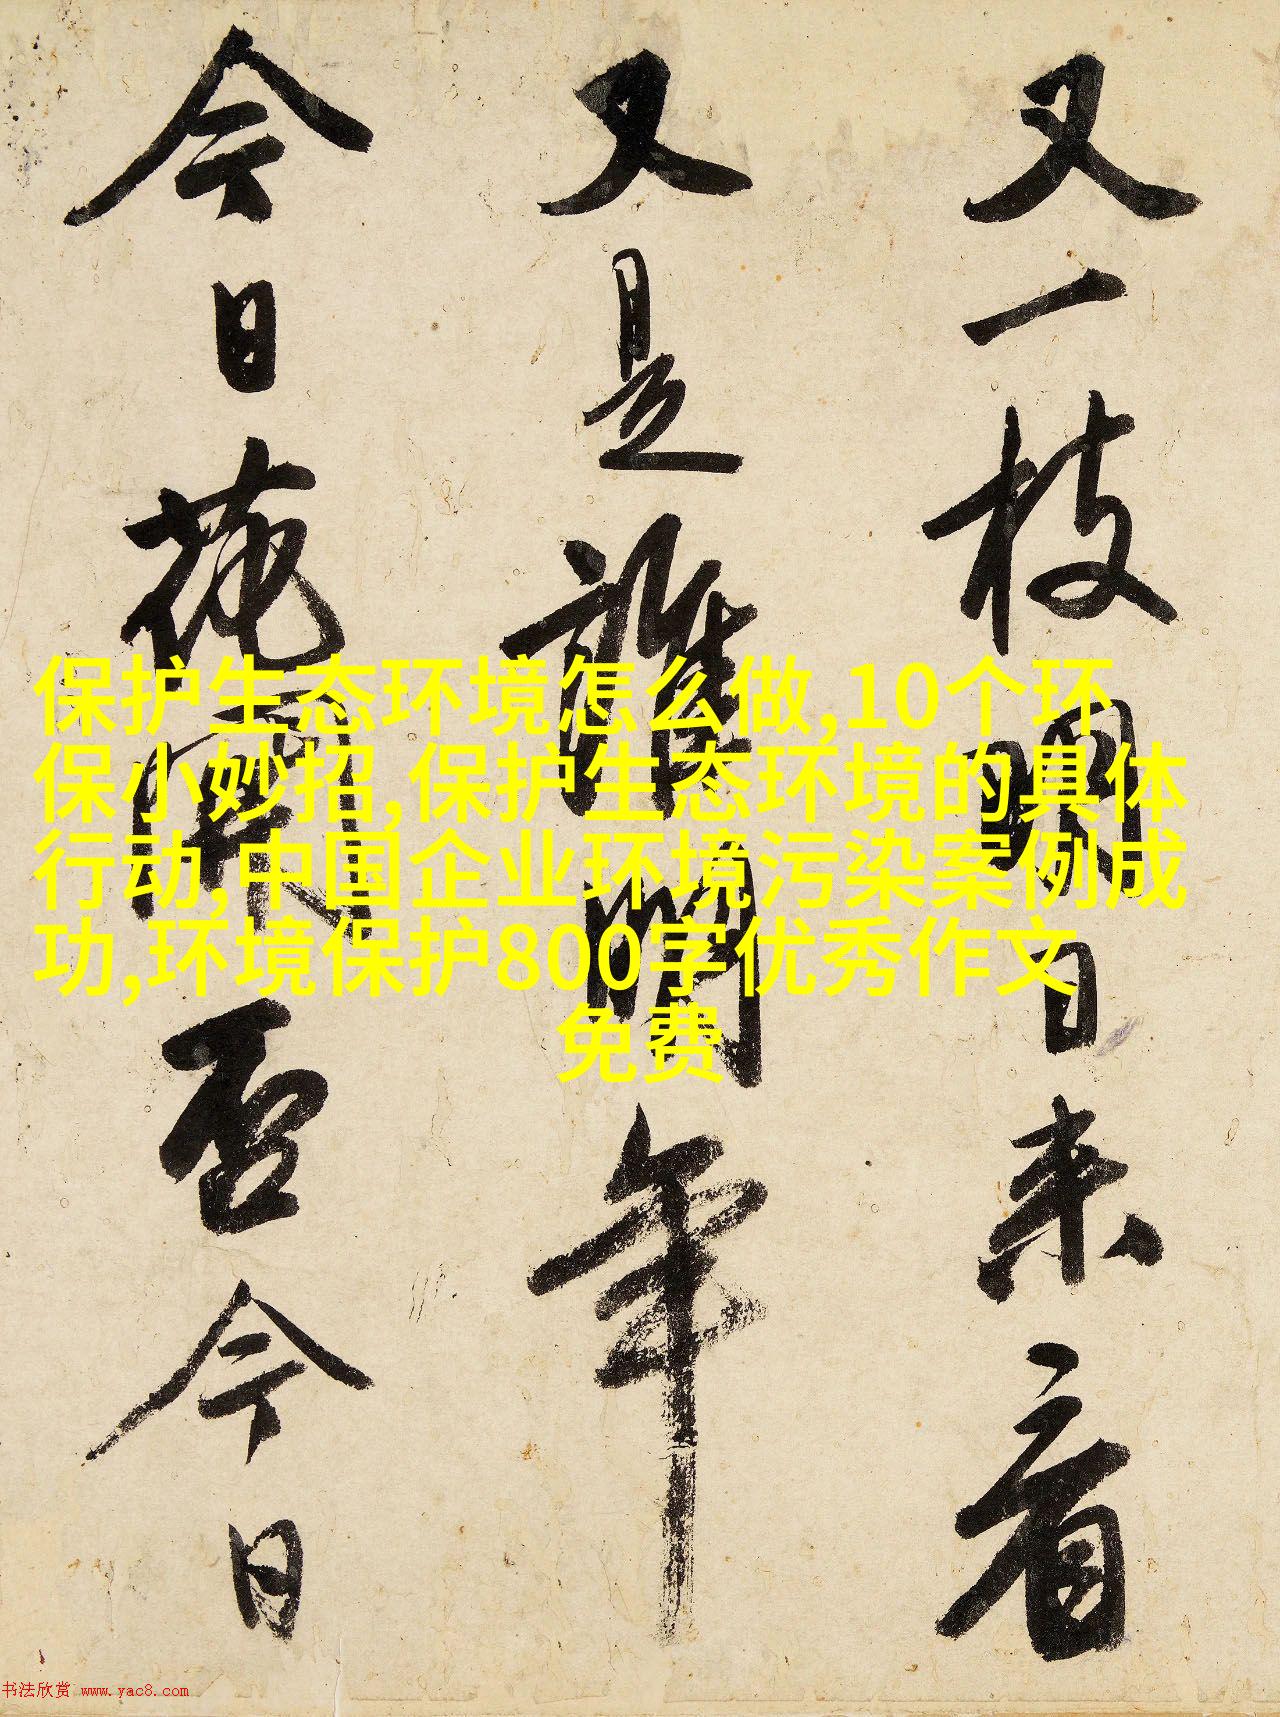 又一枝明日来看
又是誰明年
今日花開否今日
保护生态环境怎么做,10个环
保小妙招,保护生态环境的具体
行动,中国企业环境污染案例成
功,环境保护800字优秀作文
免费
书法欣赏 www.yac8.com